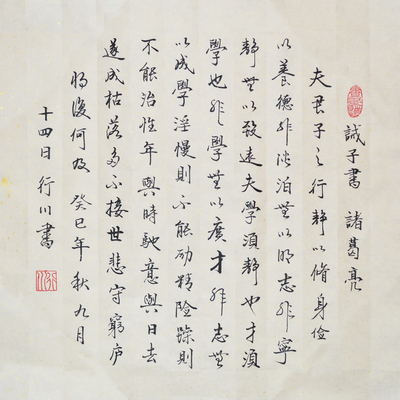 誡子書 諸葛亮
夫君子之行靜以脩身儉
以養德非淡泊無以明志非寧
靜無以致遠夫學須靜也才須
學也非學無以廣才非志無
以成學淫慢則不能励精險躁則
不能治性年與時馳意與日去
遂成枯落多不接世悲守窮庐
將復何及 癸巳年秋九月
十四日 行川書